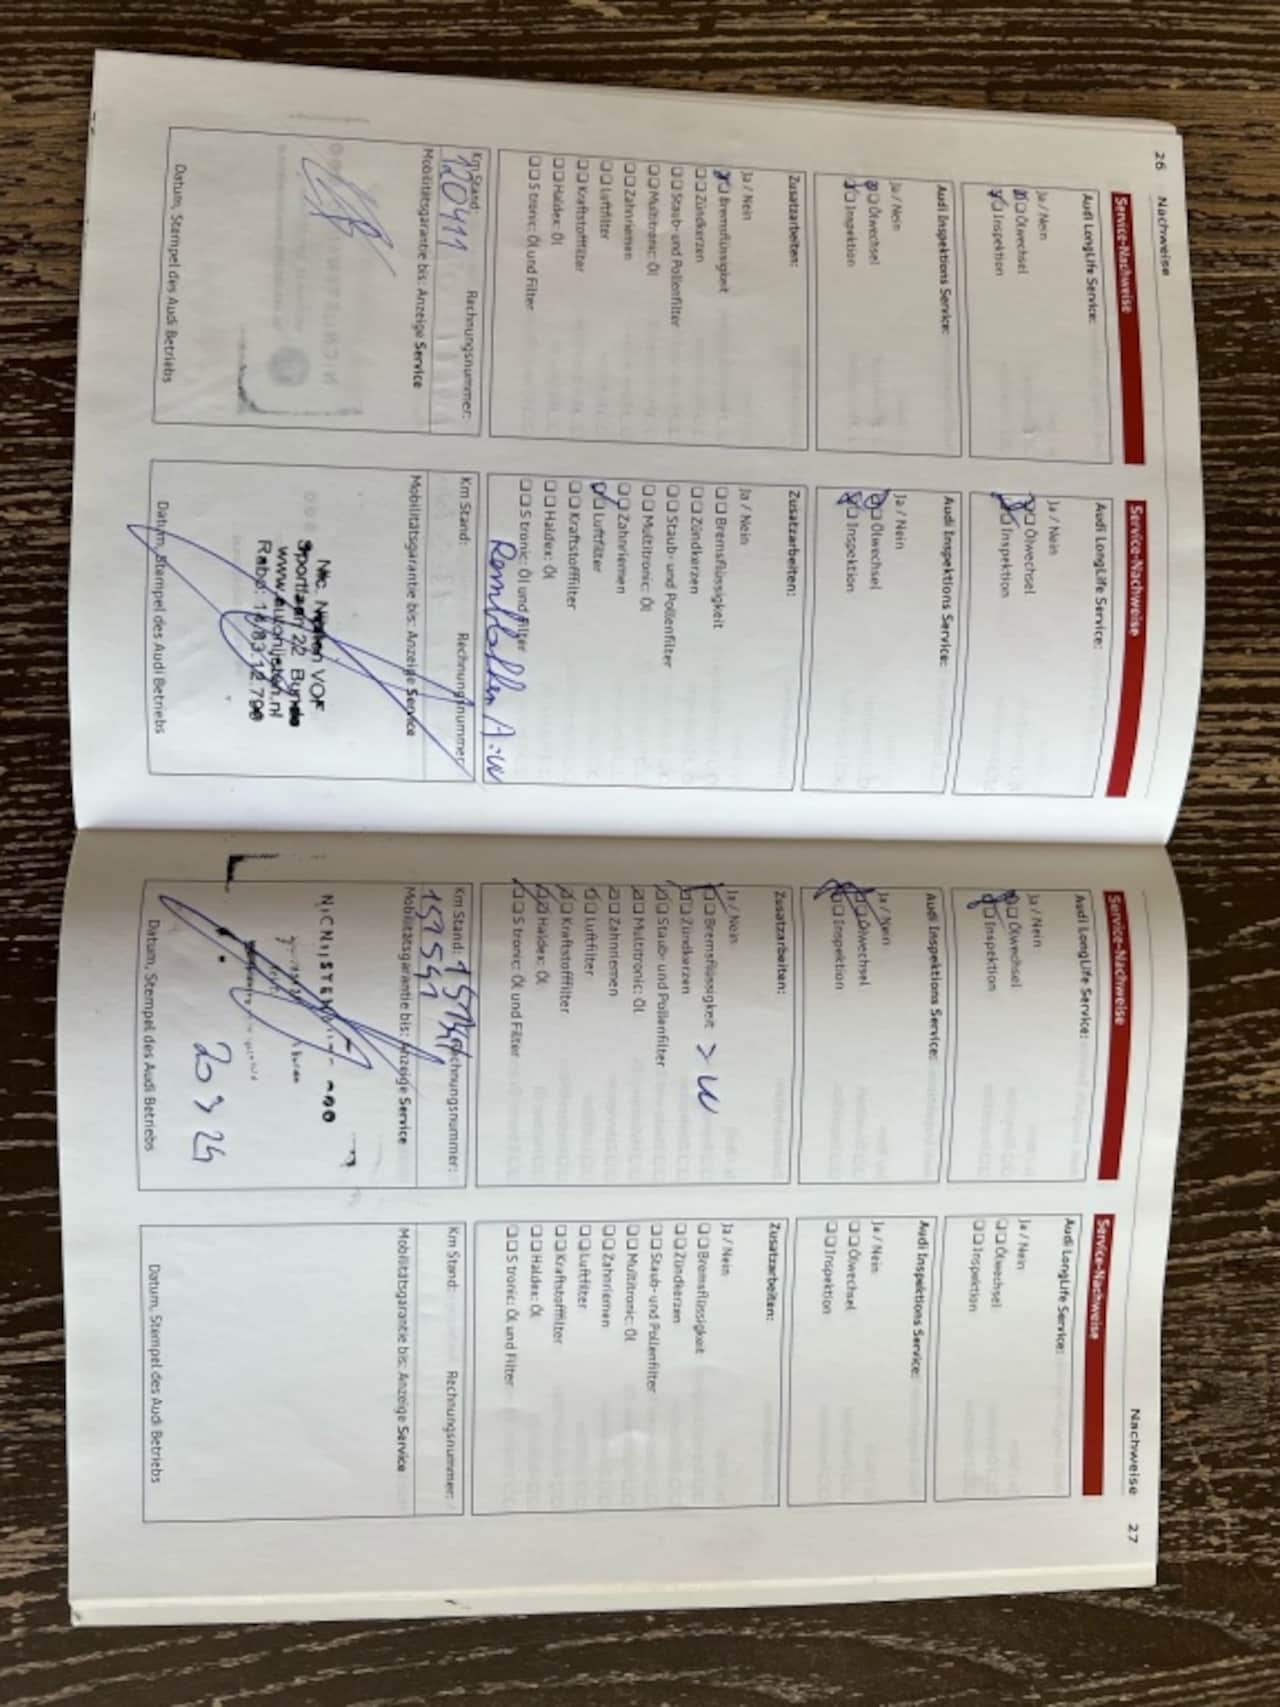 26 Nachweise
Service-Nachweise
Audi LongLife Service:
Ja / Nein
Ölwechsel
Inspektion
Audi Inspektions Service:
Ja / Nein
Ölwechsel
Inspektion
Zusatzarbeiten:
Ja / Nein
Bremsflüssigkeit
Zündkerzen
Staub- und Pollenfilter
Multitronic: Öl
Zahnriemen
Luftfilter
Kraftstofffilter
Haldex: Öl
S tronic: Öl und Filter
Km Stand: Rechnungsnummer:
120411
Mobilitätsgarantie bis: Anzeige Service
Datum, Stempel des Audi Betriebs
Service-Nachweise
Audi LongLife Service:
Ja / Nein
Ölwechsel
Inspektion
Audi Inspektions Service:
Ja / Nein
Ölwechsel
Inspektion
Zusatzarbeiten:
Ja / Nein
Bremsflüssigkeit
Zündkerzen
Staub- und Pollenfilter
Multitronic: Öl
Zahnriemen
Luftfilter
Kraftstofffilter
Haldex: Öl
S tronic: Öl und Filter
Remblokken A:W
Km Stand: Rechnungsnummer
Mobilitätsgarantie bis: Anzeige Service
Nic. Nijsten VOF
Sportlaan 22 Bunde
www.autonijsten.nl
Datum, Stempel des Audi Betriebs
Nachweise 27
Service-Nachweise
Audi LongLife Service:
Ja / Nein
Ölwechsel
Inspektion
Audi Inspektions Service:
Ja / Nein
Ölwechsel
Inspektion
Zusatzarbeiten:
Ja / Nein
Bremsflüssigkeit
Zündkerzen
> W
Staub- und Pollenfilter
Multitronic: Öl
Zahnriemen
Luftfilter
Kraftstofffilter
Haldex: Öl
S tronic: Öl und Filter
Km Stand: Rechnungsnummer:
157541
Mobilitätsgarantie bis: Anzeige Service
20 3 24
Datum, Stempel des Audi Betriebs
Service-Nachweise
Audi LongLife Service:
Ja / Nein
Ölwechsel
Inspektion
Audi Inspektions Service:
Ja / Nein
Ölwechsel
Inspektion
Zusatzarbeiten:
Ja / Nein
Bremsflüssigkeit
Zündkerzen
Staub- und Pollenfilter
Multitronic: Öl
Zahnriemen
Luftfilter
Kraftstofffilter
Haldex: Öl
S tronic: Öl und Filter
Km Stand: Rechnungsnummer:
Mobilitätsgarantie bis: Anzeige Service
Datum, Stempel des Audi Betriebs